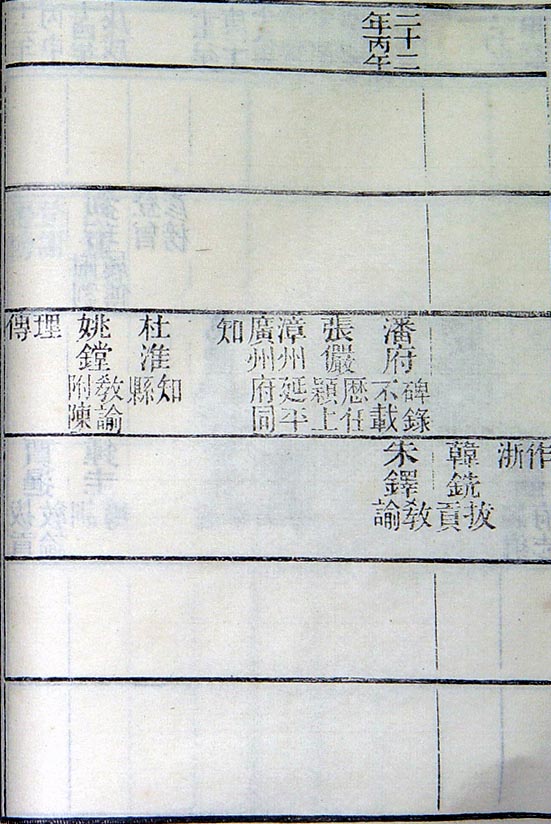 二十二
年丙午
潘府
碑錄
不載
張儼
歴任
穎上
漳州延平
廣州府同
知
杜淮
知
縣
姚鏜
教諭
附陳
埋
傳
作
浙
韓銑
拔
貢
朱鐸
教
諭